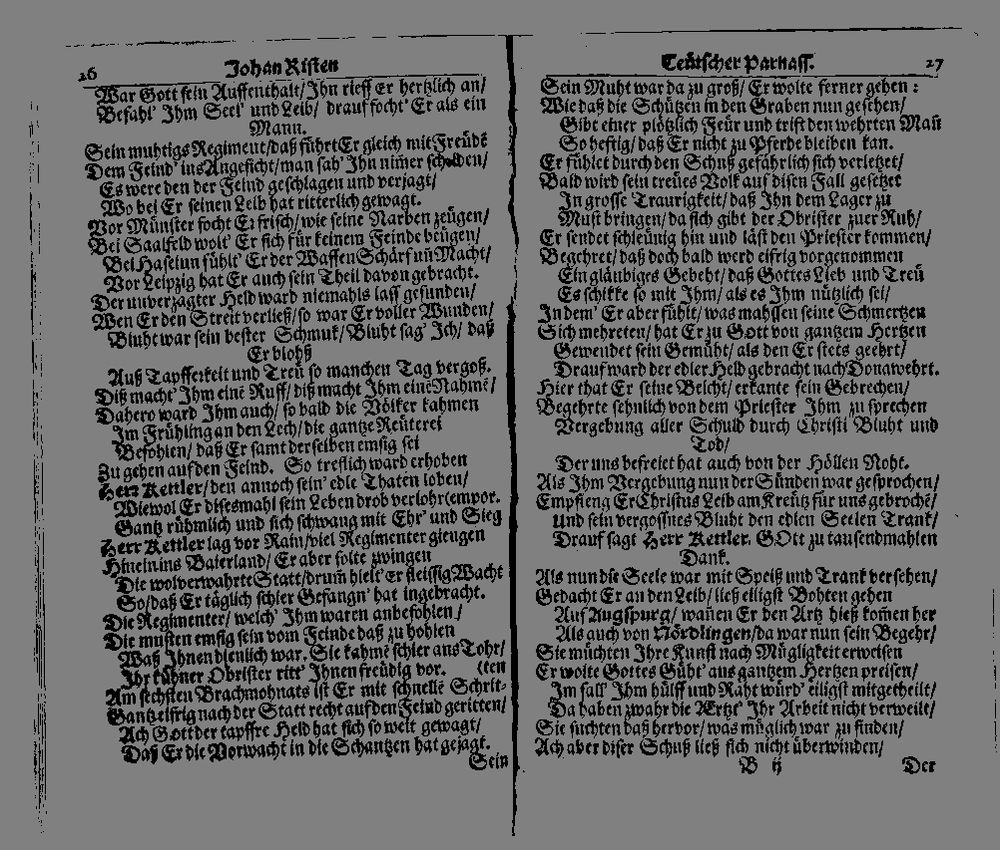 26 Johan Risten
War Gott sein Auffenthalt/ Ihn rieff Er hertzlich an/
Befahl' Ihm Seel' und Leib/ drauf focht' Er als ein
Mann.
Sein muhtigs Regiment/ daß führt Er gleich mit Freüdẽ
Dem Feind' ins Angesicht/ man sah' Ihn nim̃er scheiden/
Es were den der Feind geschlagen und verjagt/
Wo bei Er seinen Leib hat ritterlich gewagt.
Vor Münster focht Er frisch/ wie seine Narben zeügen/
Bei Saalfeld wolt' Er sich für keinem Feinde beügen/
Bei Haselun fühlt' Er der Waffen Schärf uñ Macht/
Vor Leipzig hat Er auch sein Theil davon gebracht.
Der unverzagter Held ward niemahls lass gefunden/
Wen Er den Streit verließ/ so war Er voller Wunden/
Bluht war sein bester Schmuk/ Bluht sag' Ich/ daß
Er blohß
Auß Tapfferkeit und Treü so manchen Tag vergoß.
Diß macht' Ihm einẽ Ruff/ diß macht Ihm einẽ Nahmẽ/
Dahero ward Ihm auch/ so bald die Völker kahmen
Im Frühling an den Lech/ die gantze Reüterei
Befohlen/ daß Er samt derselben emsig sei
Zu gehen auf den Feind. So treflich ward erhoben
Herr Kettler/ den annoch sein' edle Thaten loben/
Wiewol Er disesmahl sein Leben drob verlohr (empor.
Gantz rühmlich und sich schwang mit Ehr' und Sieg
Herr Kettler lag vor Rain/ viel Regimenter giengen
Hinein ins Baierland/ Er aber solte zwingen
Die wolverwahrte Statt/ drum̃ hielt' Er fleissig Wacht
So/ daß Er täglich schier Gefangn' hat ingebracht.
Die Regimenter/ welch' Ihm waren anbefohlen/
Die musten emsig sein vom Feinde daß zu hohlen
Waß Ihnen dienlich war. Sie kahmẽ schier ans Tohr/
Ihr kühner Obrister ritt' Ihnen freüdig vor. (ten
Am sechsten Brachmohnats ist Er mit schnellẽ Schrit-
Gantz eifrig nach der Statt recht auf den Feind geritten/
Ach Gott der tapffre Held hat sich so weit gewagt/
Daß Er die Vorwacht in die Schantzen hat gejagt.
Sein
Teütscher Parnass. 27
Sein Muht war da zu groß/ Er wolte ferner gehen:
Wie daß die Schützen in den Graben nun gesehen/
Gibt einer plötzlich Feür und trift den wehrten Mañ
So heftig/ daß Er nicht zu Pferde bleiben kan.
Er fühlet durch den Schuß gefährlich sich verletzet/
Bald wird sein treües Volk auf disen Fall gesetzet
In grosse Traurigkeit/ daß Ihn dem Lager zu
Must bringen/ da sich gibt der Obrister zuer Ruh/
Er sendet schleünig hin und läst den Priester kommen/
Begehret/ daß doch bald werd eifrig vorgenommen
Ein gläubiges Gebeht/ daß Gottes Lieb und Treü
Es schikke so mit Ihm/ als es Ihm nützlich sei/
In dem' Er aber fühlt/ was mahssen seine Schmertzen
Sich mehreten/ hat Er zu Gott von gantzem Hertzen
Gewendet sein Gemüht/ als den Er stets geehrt/
Drauf ward der edler Held gebracht nach Donawehrt.
Hier that Er seine Beicht/ erkante sein Gebrechen/
Begehrte sehnlich von dem Priester Ihm zu sprechen
Vergebung aller Schuld durch Christi Bluht und
Tod/
Der uns befreiet hat auch von der Höllen Noht.
Als Ihm Vergebung nun der Sünden war gesprochen/
Empfieng Er Christus Leib am Kreütz für uns gebrochẽ/
Und sein vergossnes Bluht den edlen Seelen Trank/
Drauf sagt Herr Kettler. GOtt zu tausendmahlen
Dank.
Als nun die Seele war mit Speiß und Trank versehen/
Gedacht Er an den Leib/ ließ eiligst Bohten gehen
Auf Augspurg/ wañen Er den Artz hieß kom̃en her
Als auch von Nördlingen/ da war nun sein Begehr/
Sie müchten Ihre Kunst nach Mügligkeit erweisen
Er wolte Gottes Güht' aus gantzem Hertzen preisen/
Im fall' Ihm hülff und Raht würd' eiligst mitgetheilt/
Da haben zwahr die Ærtzt' Ihr Arbeit nicht verweilt/
Sie suchten das hervor/ was müglich war zu finden/
Ach aber diser Schuß ließ sich nicht überwinden/
B ij Der